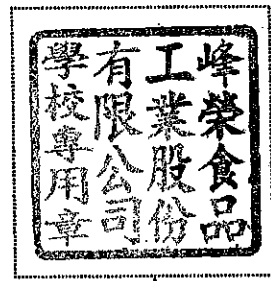 峰榮食品
工業股份
有限公司
學校專用章